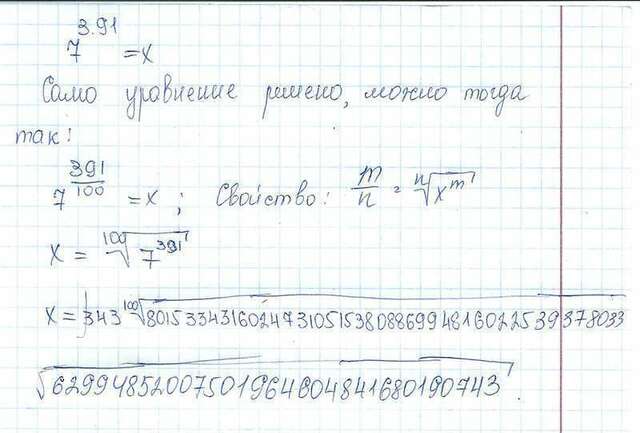 7^3.91 = x
Само уравнение решено, можно тогда
так:
7^(391/100) = x ; Свойство: m/n = ⁿ√x^m
x = ¹⁰⁰√7^391
x = 343 ¹⁰⁰√80153343160247310515380886994816022539378033
√62994852007501964604841680190743